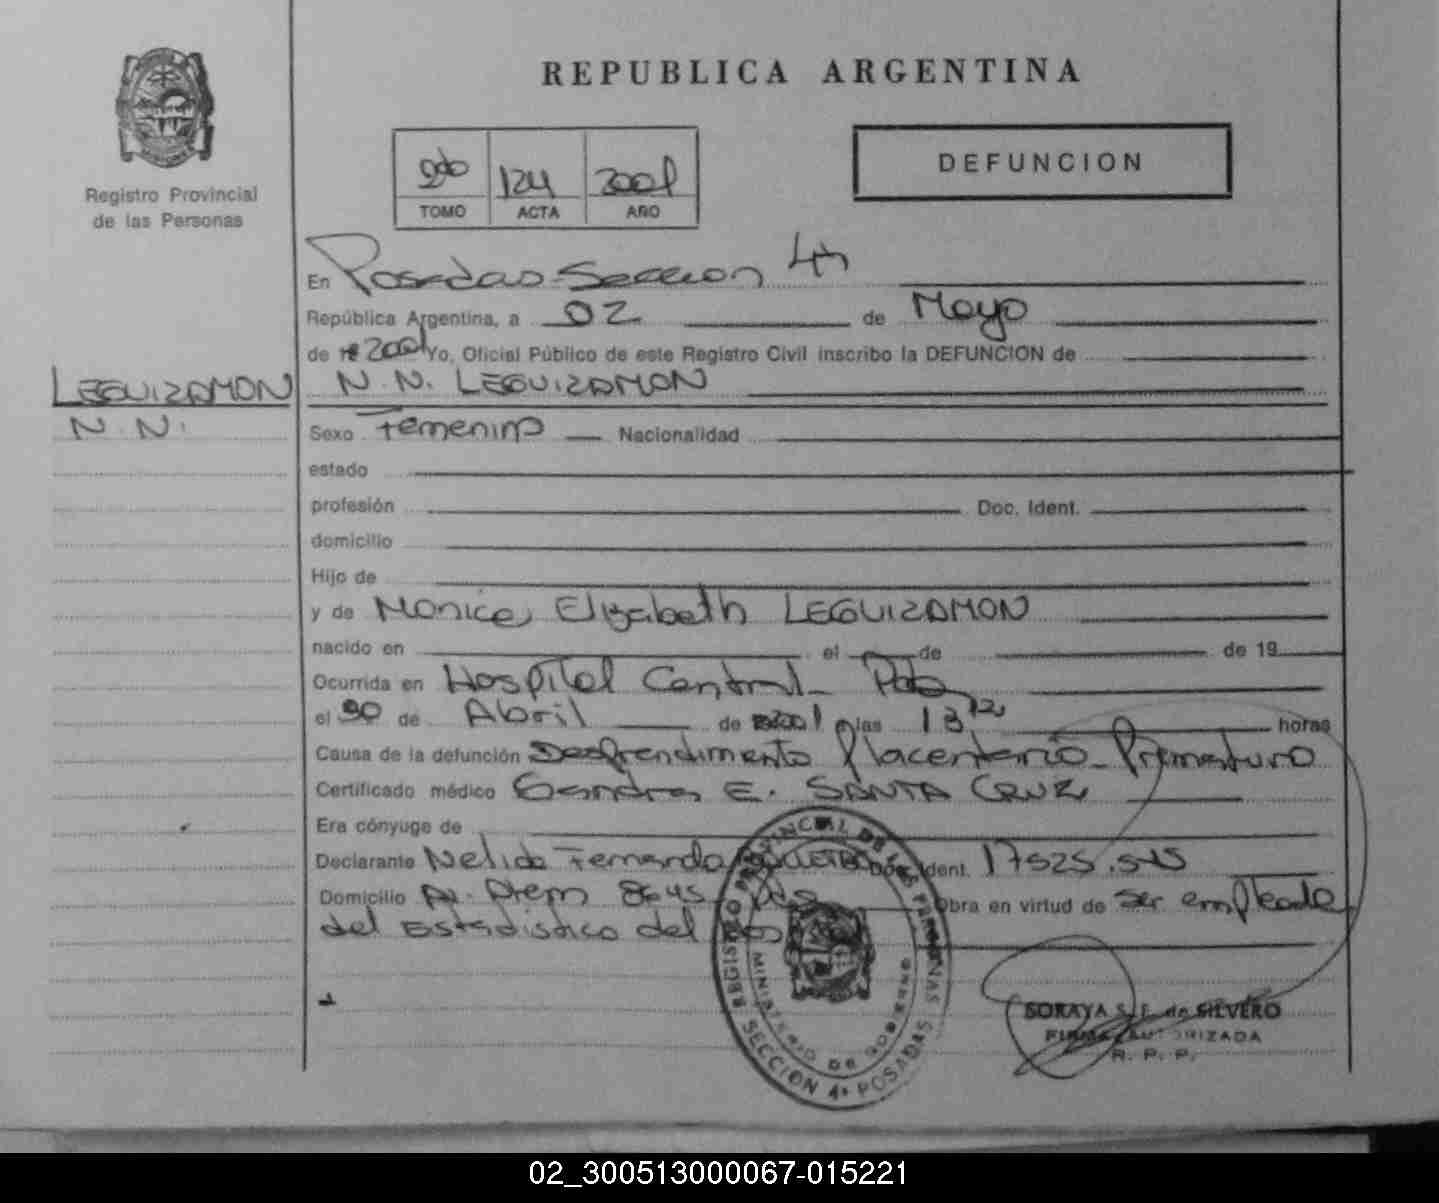 REPUBLICA ARGENTINA
Registro Provincial
de las Personas
2do 124 2001
TOMO ACTA AÑO
DEFUNCION
En Posadas-Seccion 4ta
República Argentina, a 02 de Mayo
de 2001 Yo, Oficial Público de este Registro Civil inscribo la DEFUNCION de
LEGUIZAMON
N. N.
N. N. LEGUIZAMON
Sexo Femenino Nacionalidad
estado
profesión Doc. Ident.
domicilio
Hijo de
y de Monica Elizabeth LEGUIZAMON
nacido en el de de 19
Ocurrida en Hospital Central-
el 30 de Abril de 2001 a las 13 12 horas
Causa de la defunción Desprendimiento Placentario-Prematuro
Certificado médico Sandra E. SANTA CRUZ
Era cónyuge de
Declarante Nelida Fernanda Doc. Ident. 17525.545
Domicilio Av. 8645 Pdas Obra en virtud de ser empleada
del Estadistico del
REGISTRO PROVINCIAL DE LAS PERSONAS
MINISTERIO DE GOBIERNO
SECCION 4a POSADAS
SORAYA S. F. de SILVERO
FIRMA AUTORIZADA
R. P. P.
02_300513000067-015221